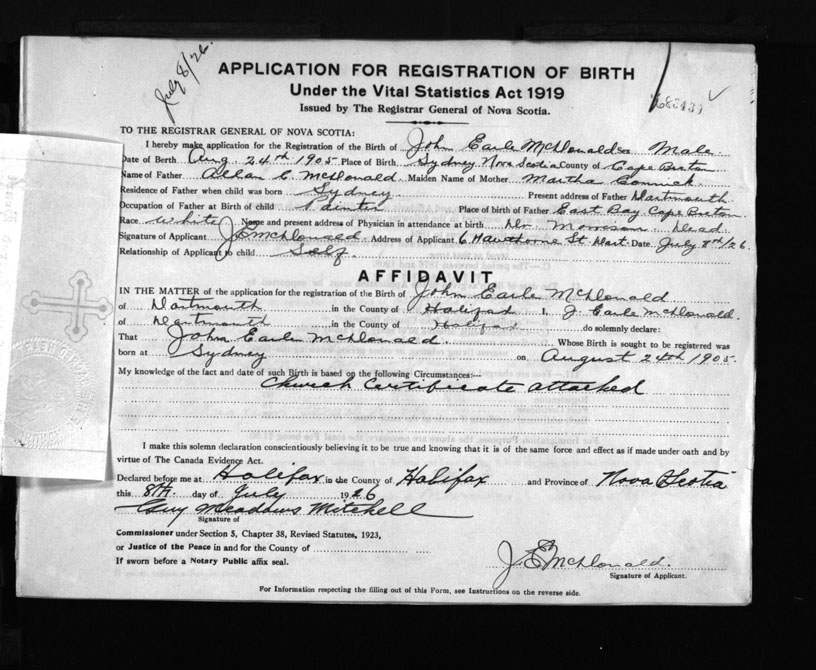 July 8/26
APPLICATION FOR REGISTRATION OF BIRTH
Under the Vital Statistics Act 1919
Issued by The Registrar General of Nova Scotia.
TO THE REGISTRAR GENERAL OF NOVA SCOTIA:
I hereby make application for the Registration of the Birth of John Earle McDonald Male
Date of Birth Aug 24th 1905 Place of Birth Sydney Nova Scotia County of Cape Breton
Name of Father Allan C McDonald Maiden Name of Mother Martha
Residence of Father when child was born Sydney Present address of Father Dartmouth
Occupation of Father at Birth of child Painter Place of birth of Father East Bay Cape Breton
Race White Name and present address of Physician in attendance at birth Dr Morrison Dead
Signature of Applicant J E McDonald Address of Applicant 6 Hawthorne St Dart. Date July 8th/26
Relationship of Applicant to child Self
AFFIDAVIT
IN THE MATTER of the application for the registration of the Birth of John Earle McDonald
of Dartmouth in the County of Halifax I, J. Earle McDonald
of Dartmouth in the County of Halifax do solemnly declare:
That John Earle McDonald Whose Birth is sought to be registered was
born at Sydney on August 24th 1905
My knowledge of the fact and date of such Birth is based on the following Circumstances:—
Church Certificate attached
I make this solemn declaration conscientiously believing it to be true and knowing that it is of the same force and effect as if made under oath and by
virtue of The Canada Evidence Act.
Declared before me at Halifax in the County of Halifax and Province of Nova Scotia
this 8th day of July 1926
Guy Meadows Mitchell
Signature of
Commissioner under Section 5, Chapter 38, Revised Statutes, 1923,
or Justice of the Peace in and for the County of
If sworn before a Notary Public affix seal.
J. E. McDonald.
Signature of Applicant.
For Information respecting the filling out of this Form, see Instructions on the reverse side.